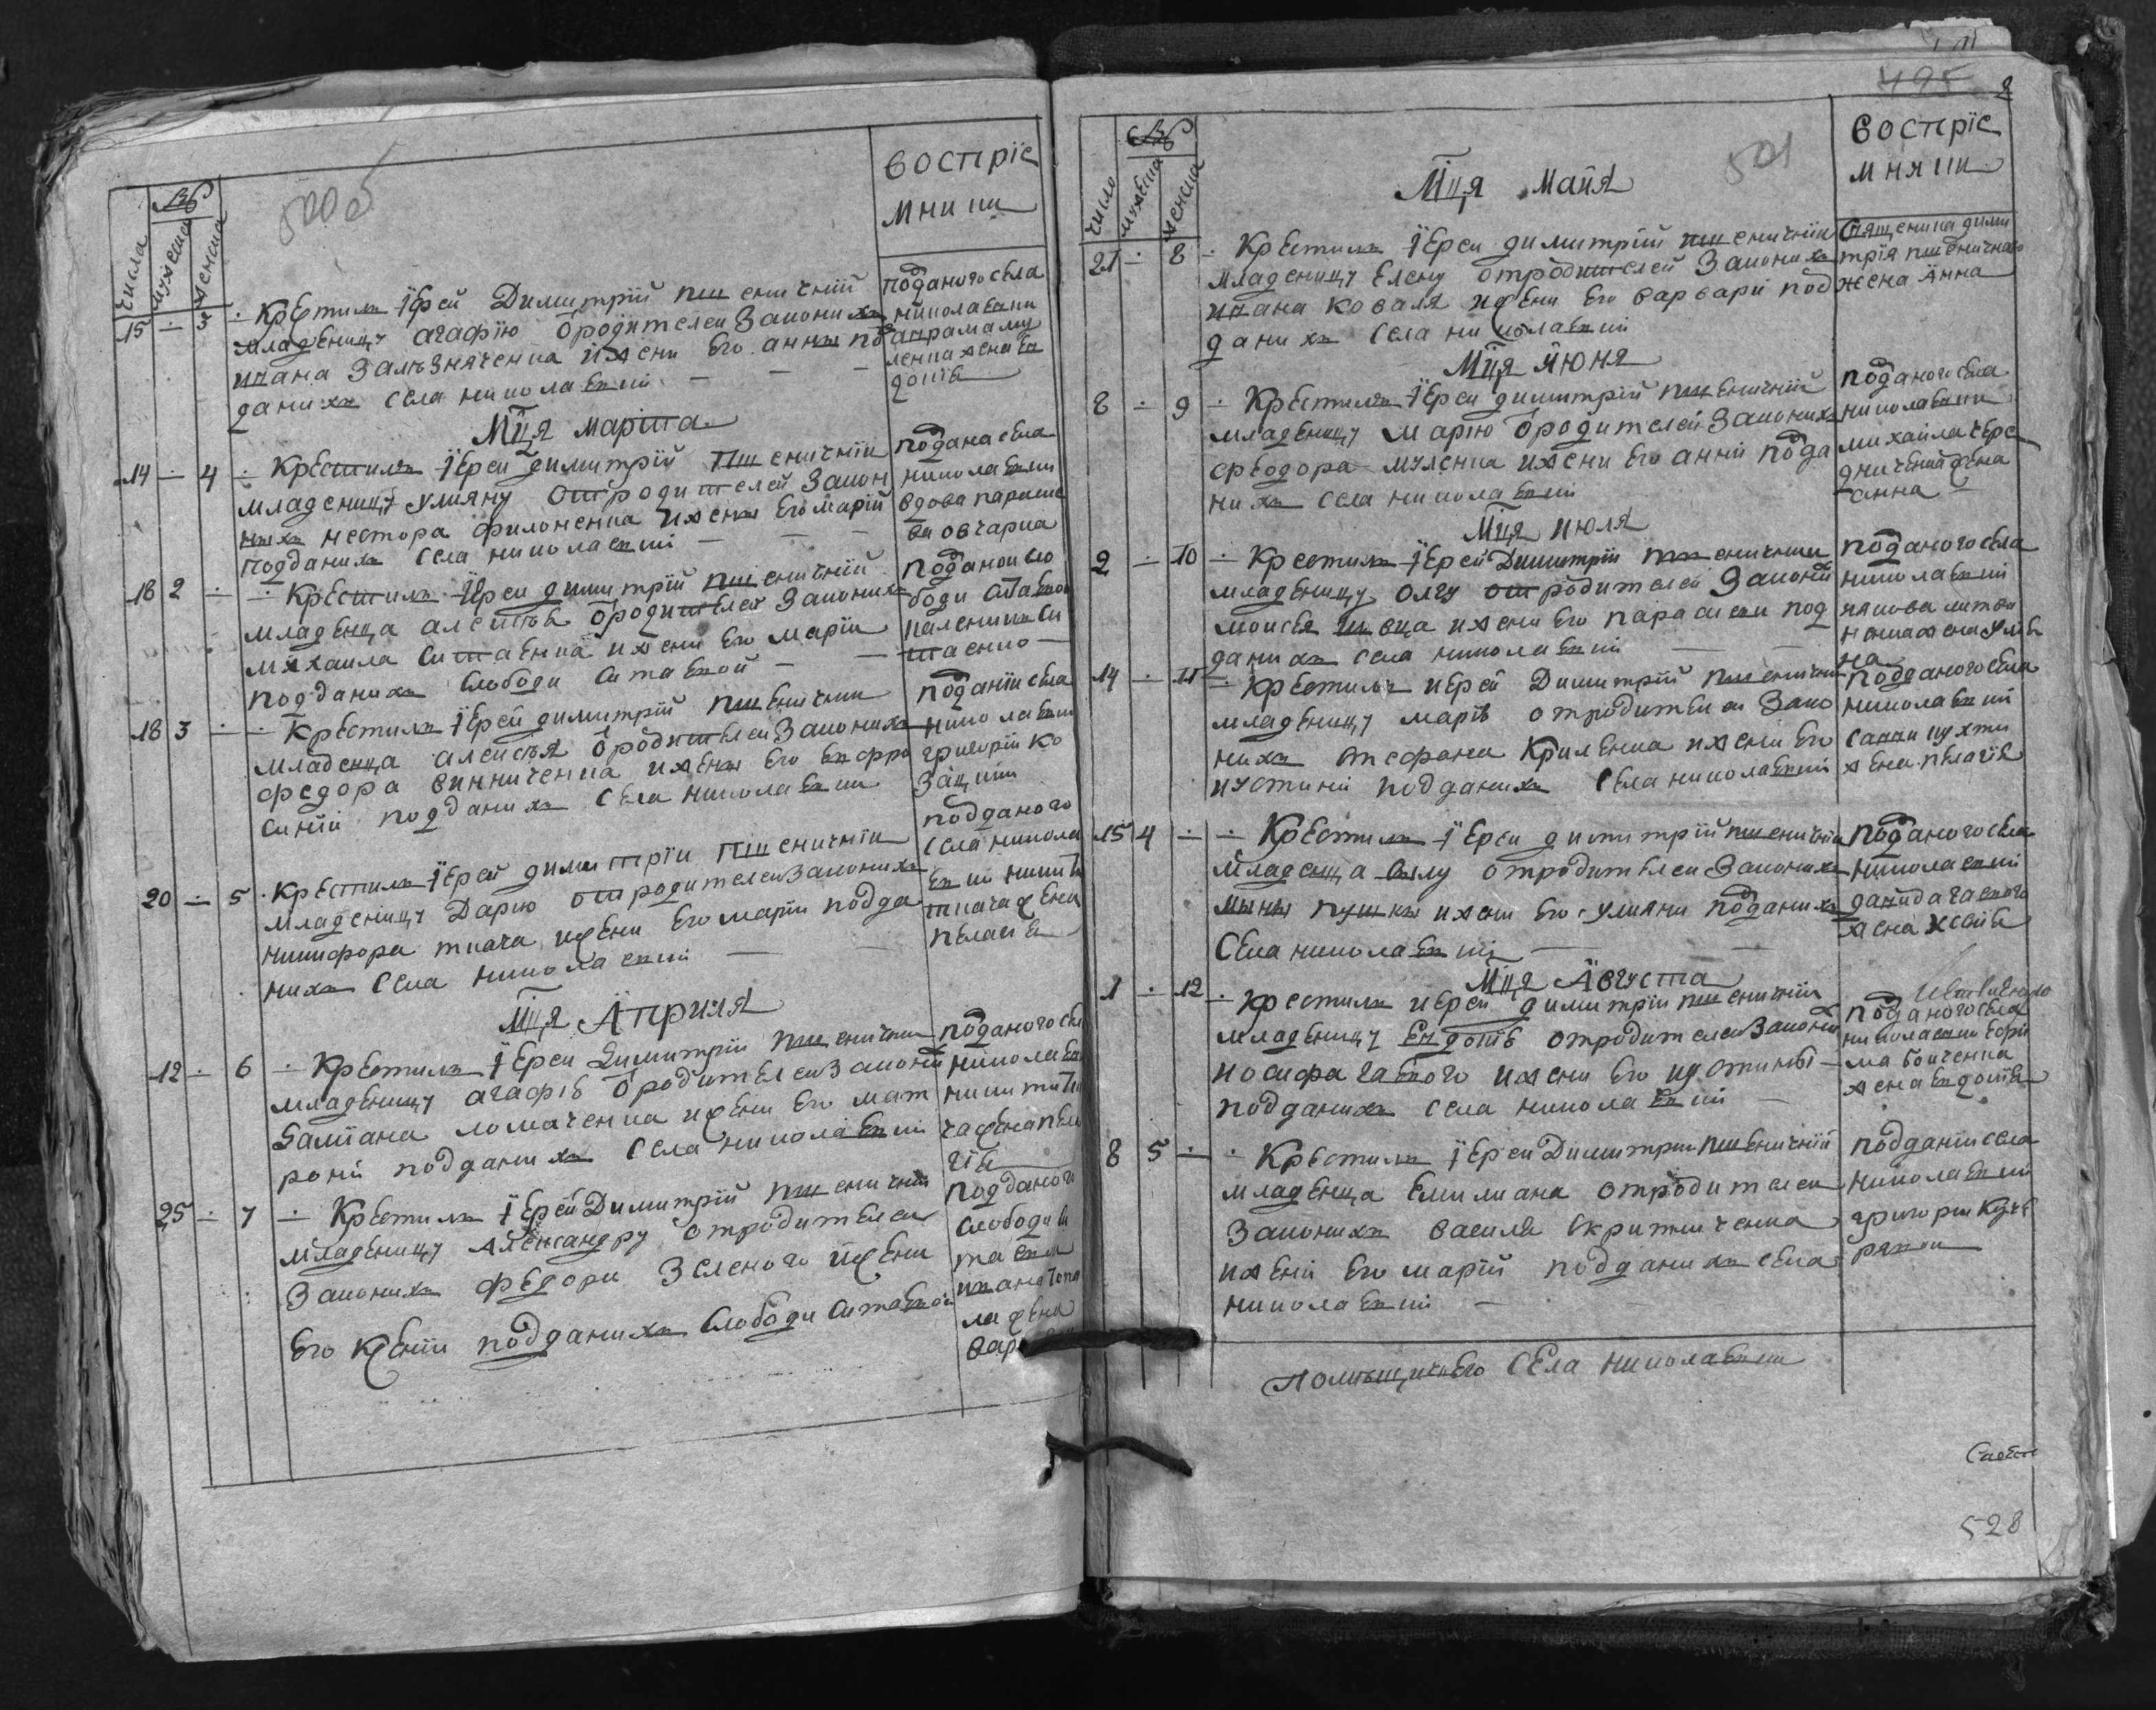 500б
числа
мужеска
женска
воспріе
мники
15 - 3 - Крестилъ іерей Димитрій пшеничній
младеницу агафію ѿродителей законихъ
ивана залѣзняченка и жени его анны под
даныхъ села николаевки
подданого села
николаевки
жена ев
докія
Мця марта
14 - 4 - Крестилъ іерей димитрій пшеничній
младеницу улияну отродителей закон
ныхъ нестора филоненка и жены его маріи
подданихъ села николаевки
поддана села
николаевки
вдова параске
ва овчарка
18 2 - Крестилъ іерей димитрій пшеничній
младенца алексѣя ѿродителей законихъ
михаила ситаенка и жени его маріи
подданихъ слободи ситаевой
подданои сло
боди
18 3 - Крестилъ іерей димитрій пшеничній
младенца алексѣя ѿродителей законихъ
федора винниченка и жены его евфро
синіи подданихъ села николаевки
подданій села
николаевки
григорій ко
зацкій
20 - 5 Крестилъ іерей димитрій пшеничній
младеницу Дарию отродителей законихъ
никифора ткача и жени его маріи подда
нихъ села николаевки
подданого
села никола
евки никити
ткача жена
пелагея
Мця Априля
12 - 6 - Крестилъ іерей Димитрій пшеничній
младеницу агафію ѿродителей закони
даміана ломаченка и жени его мат
рони подданихъ села николаевки
подданого села
николаев
никити тка
ча жена пела
гія
25 - 7 - Крестилъ іерей Димитрій пшеничній
младеницу Александру отродителей
законихъ федора зеленого и жени
его ксеніи подданихъ слободи ситаевой
подданого
слободи си
таевой
ивана
ла жена
вар
495
501
число
мужеска
женска
воспріе
мники
Мця Майя
21 - 8 - Крестилъ іерей димитрій пшеничній
младеницу елену отродителей законихъ
ивана коваля и жени его варвари под
данихъ села николаевки
священика дими
трія пшеничного
жена Анна
Мця июня
8 - 9 - Крестилъ іерей димитрій пшеничній
младеницу марію ѿродителей законихъ
феодора муленка и жени его анни подда
нихъ села николаевки
подданого села
николаевки
михайла чере
дниченка жена
анна
Мця июля
2 - 10 - Крестилъ іерей Димитрій пшеничній
младеницу олгу отродителей законій
моисея швца и жени его параскеви под
данихъ села николаевки
подданого села
николаевки
якова литви
ненка жена улия
на
14 - 11 - Крестилъ иерей Димитрій пшеничній
младеницу марію отродителей зако
нихъ стефана криленка и жени его
иустиніи подданихъ села николаевки
подданого села
николаевки
саввы
жена пелагія
15 4 - - Крестилъ іерей димитрій пшеничній
младенца силу отродителей законихъ
мины пушки и жени его улияни подданихъ
села николаевки
подданого села
николаевки
данила гаевого
жена
Мця Августа
1 - 12 - крестилъ иерей димитрій пшеничній
младеницу евдокію отродителей законій
иосифа гаевого и жени его иустины
подданихъ села николаевки
подданого села
николаевки ефи
ма бойченка
жена евдокія
8 5 - - Крестилъ іерей Димитрій пшеничній
младенца емилиана отродителей
законихъ василя скрипниченка
и жени его маріи подданихъ села
николаевки
подданій села
николаевки
григорій
помѣщичьего села николаевки
528